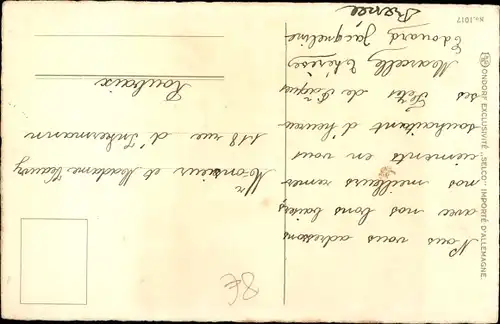 Nous vous adressons
avec nos bons baisers
nos meilleurs remer
ciements en vous
souhaitant d'heureu
ses Fêtes de Pâques
Marcelle Thérèse
Edouard Jacqueline
Monsieur et Madame
118 rue d'Inkermann
Roubaix
8€
ONDORF EXCLUSIVITÉ „SELCO" IMPORTÉ D'ALLEMAGNE
No. 1017